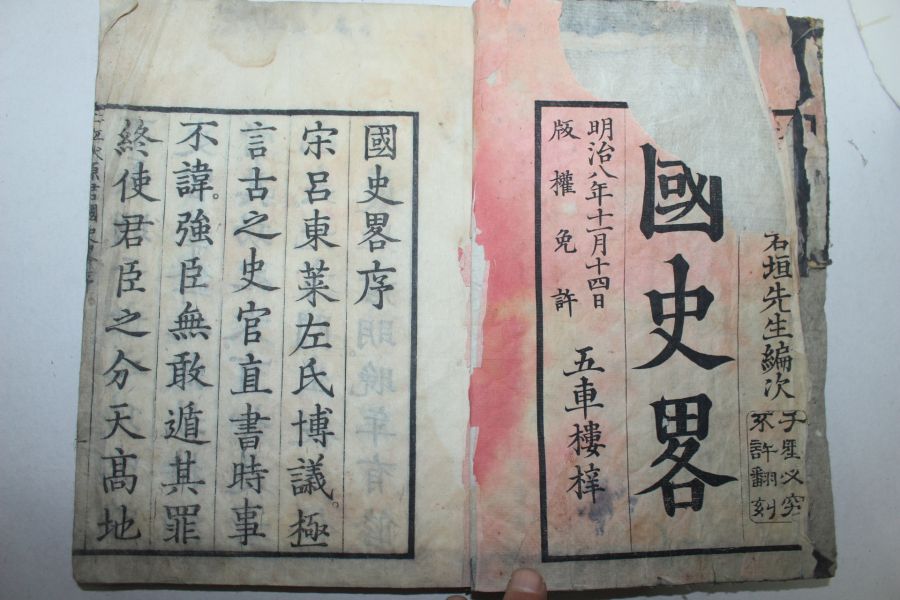 岩垣先生編次
千里必究
不許翻刻
國史畧
明治八年十一月十四日
版權免許
五車樓梓
國史畧序
宋呂東萊左氏博議。極
言古之史官直書時事
不諱。強臣無敢遁其罪
終使君臣之分天髙地